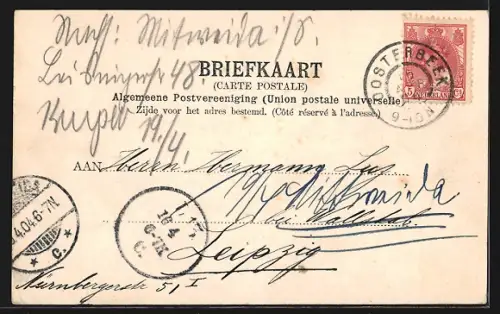 Nach: Mitweida i/S.
Leisnigerstr 48.
BRIEFKAART
(CARTE POSTALE)
Algemeene Postvereeniging (Union postale universelle)
Zijde voor het adres bestemd. (Côté réservé à l'adresse)
11/4.
OOSTERBEEK
9-10N
NEDERLAND
5
AAN Herrn Hermann
Mittweida
bei
Leipzig
Nürnbergerstr 51 I
4.04.6-7N.
C.
6-7N
C.